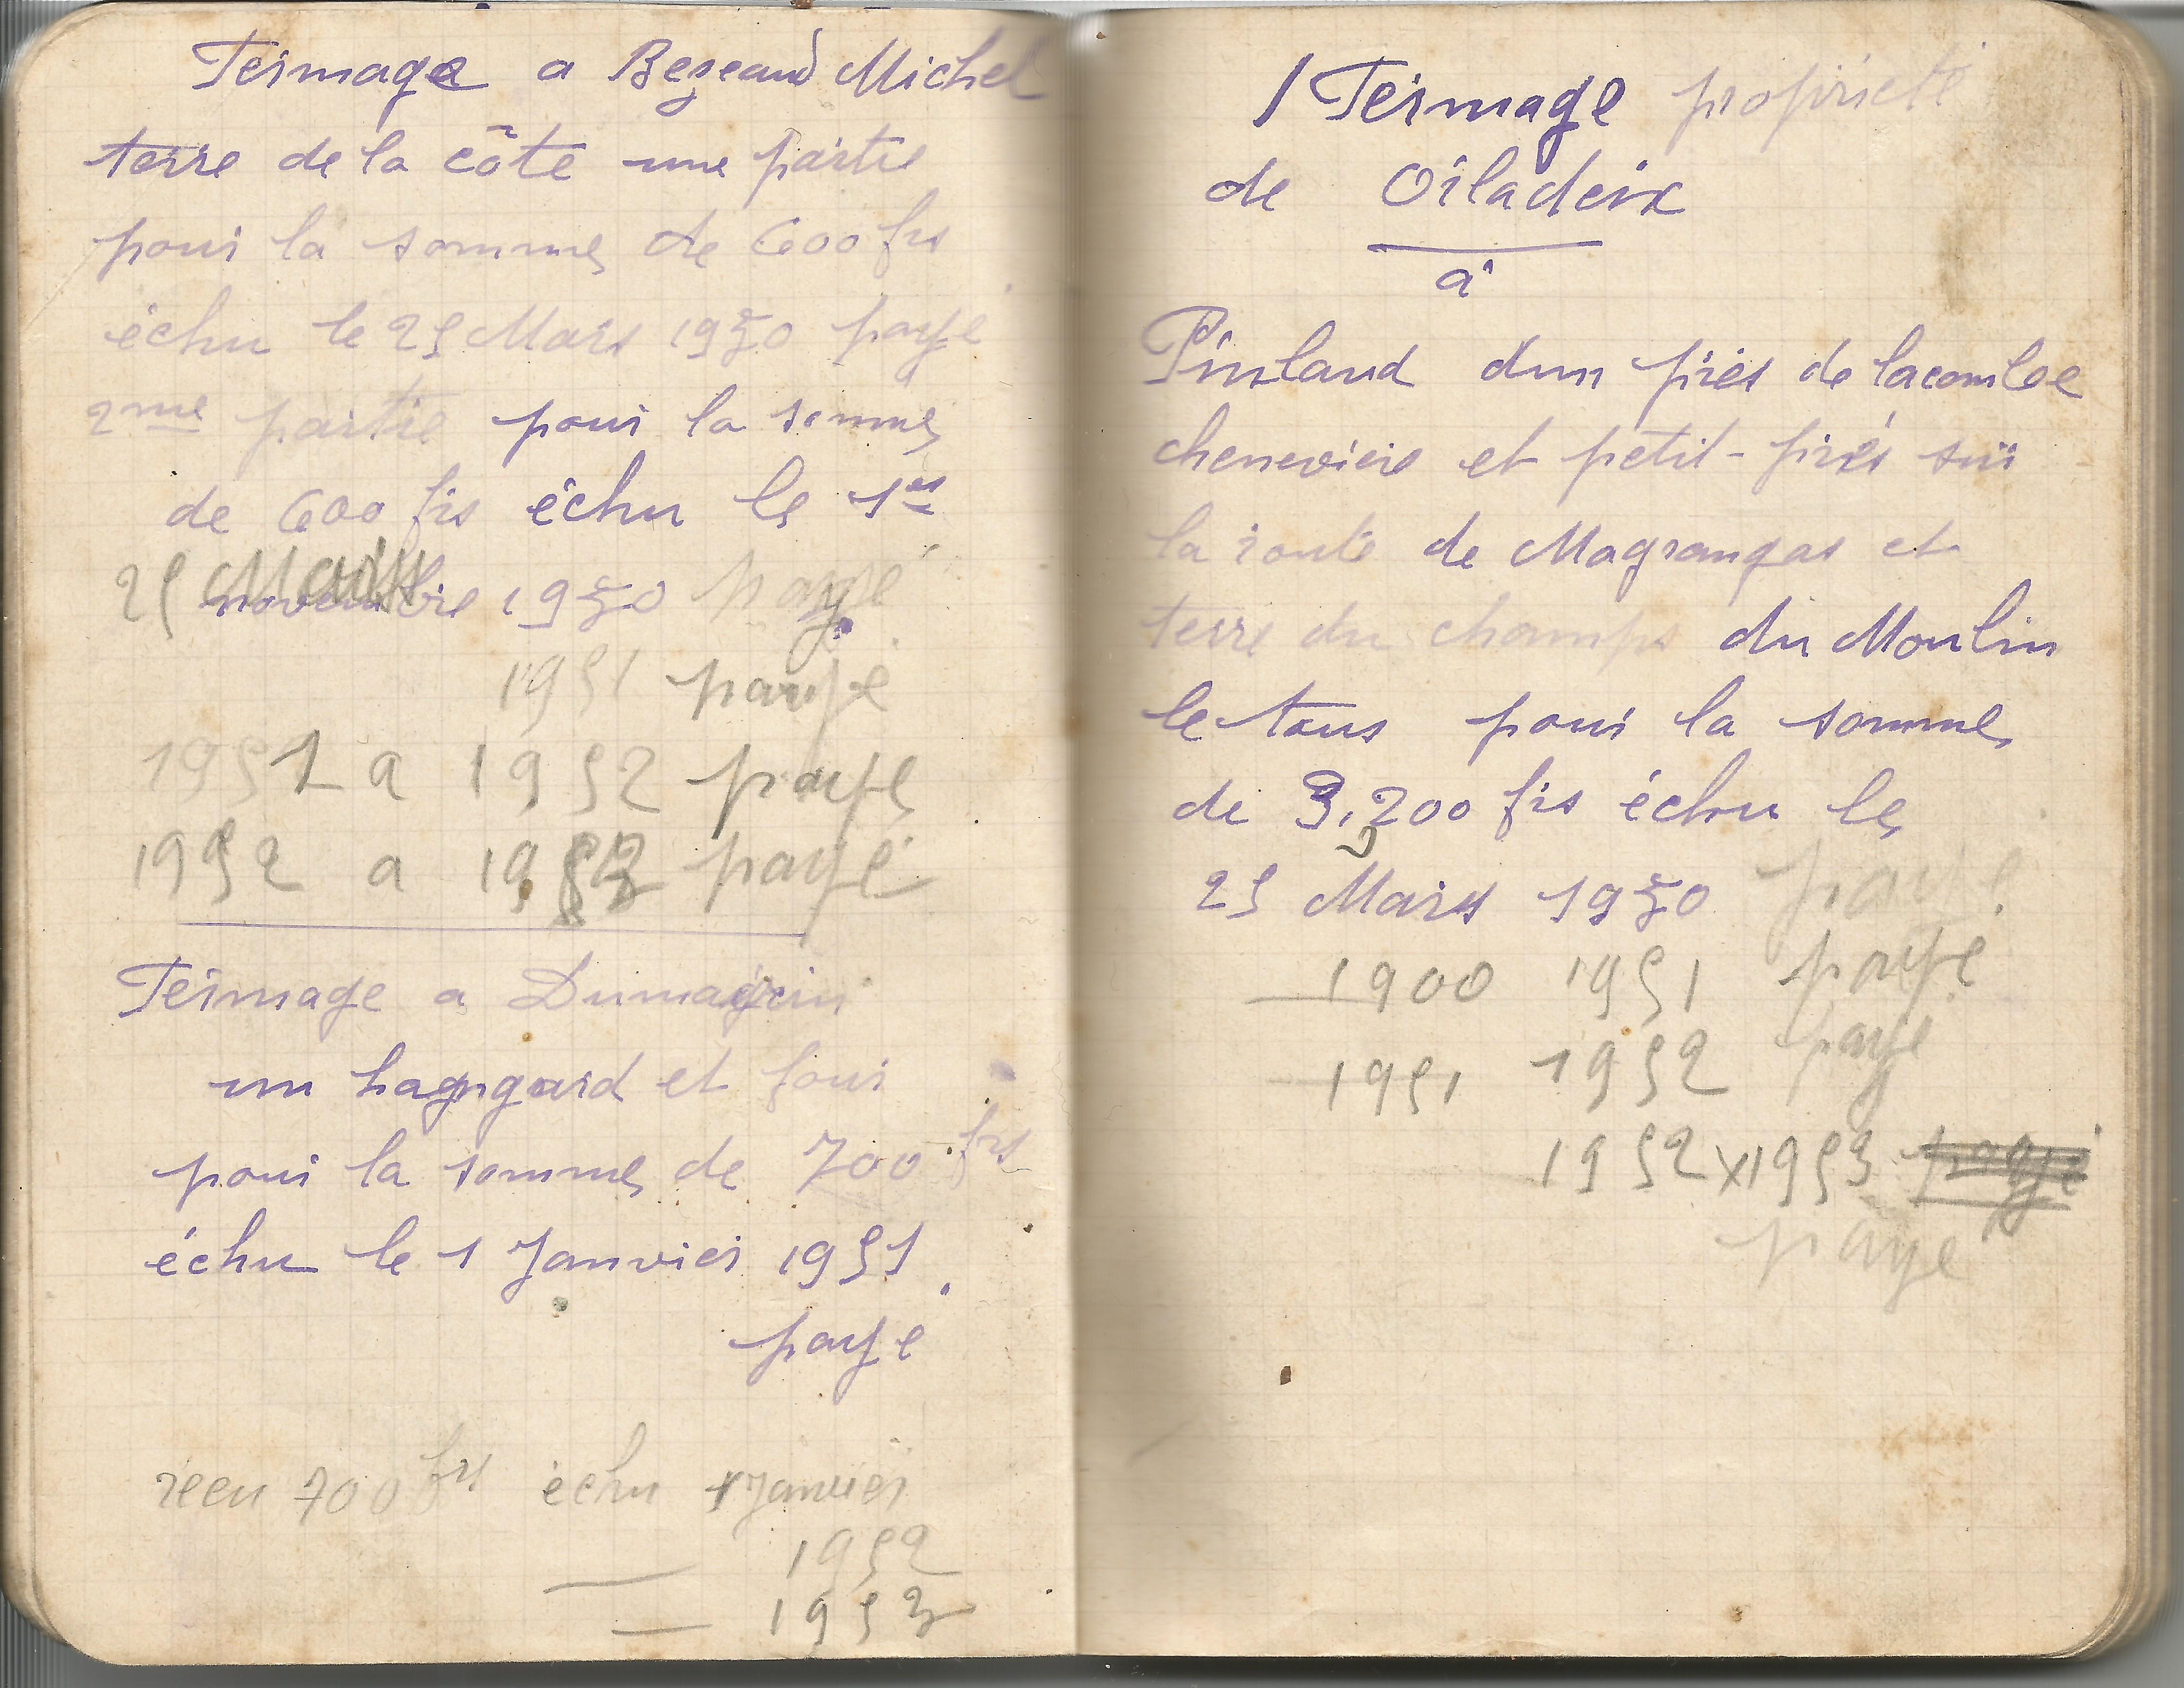 Fermage a Bezeaud Michel
terre de la côte une partie
pour la somme de 600 frs
échu le 25 Mars 1950 payé
2me partie pour la somme
de 600 frs échu le 1er
25 novembre 1950 payé
1951 payé
1951 a 1952 payé
1952 a 1953 payé
Fermage a
un hagngard et four
pour la somme de 700 frs
échu le 1 Janvier 1951.
payé
recu 700 frs échu 1 Janvier
— 1952
— 1953
1 Fermage propriété
de Oiladeix
a
Pinlaud dun près de lacombe
cheneviere et petit-près sur
la route de Magrangas et
terre du champs du Moulin
le tous pour la somme
de 3,200 frs échu le
25 Mars 1950 payé
1900 1951 payé
1951 1952 payé
1952 x 1953 payé
payé